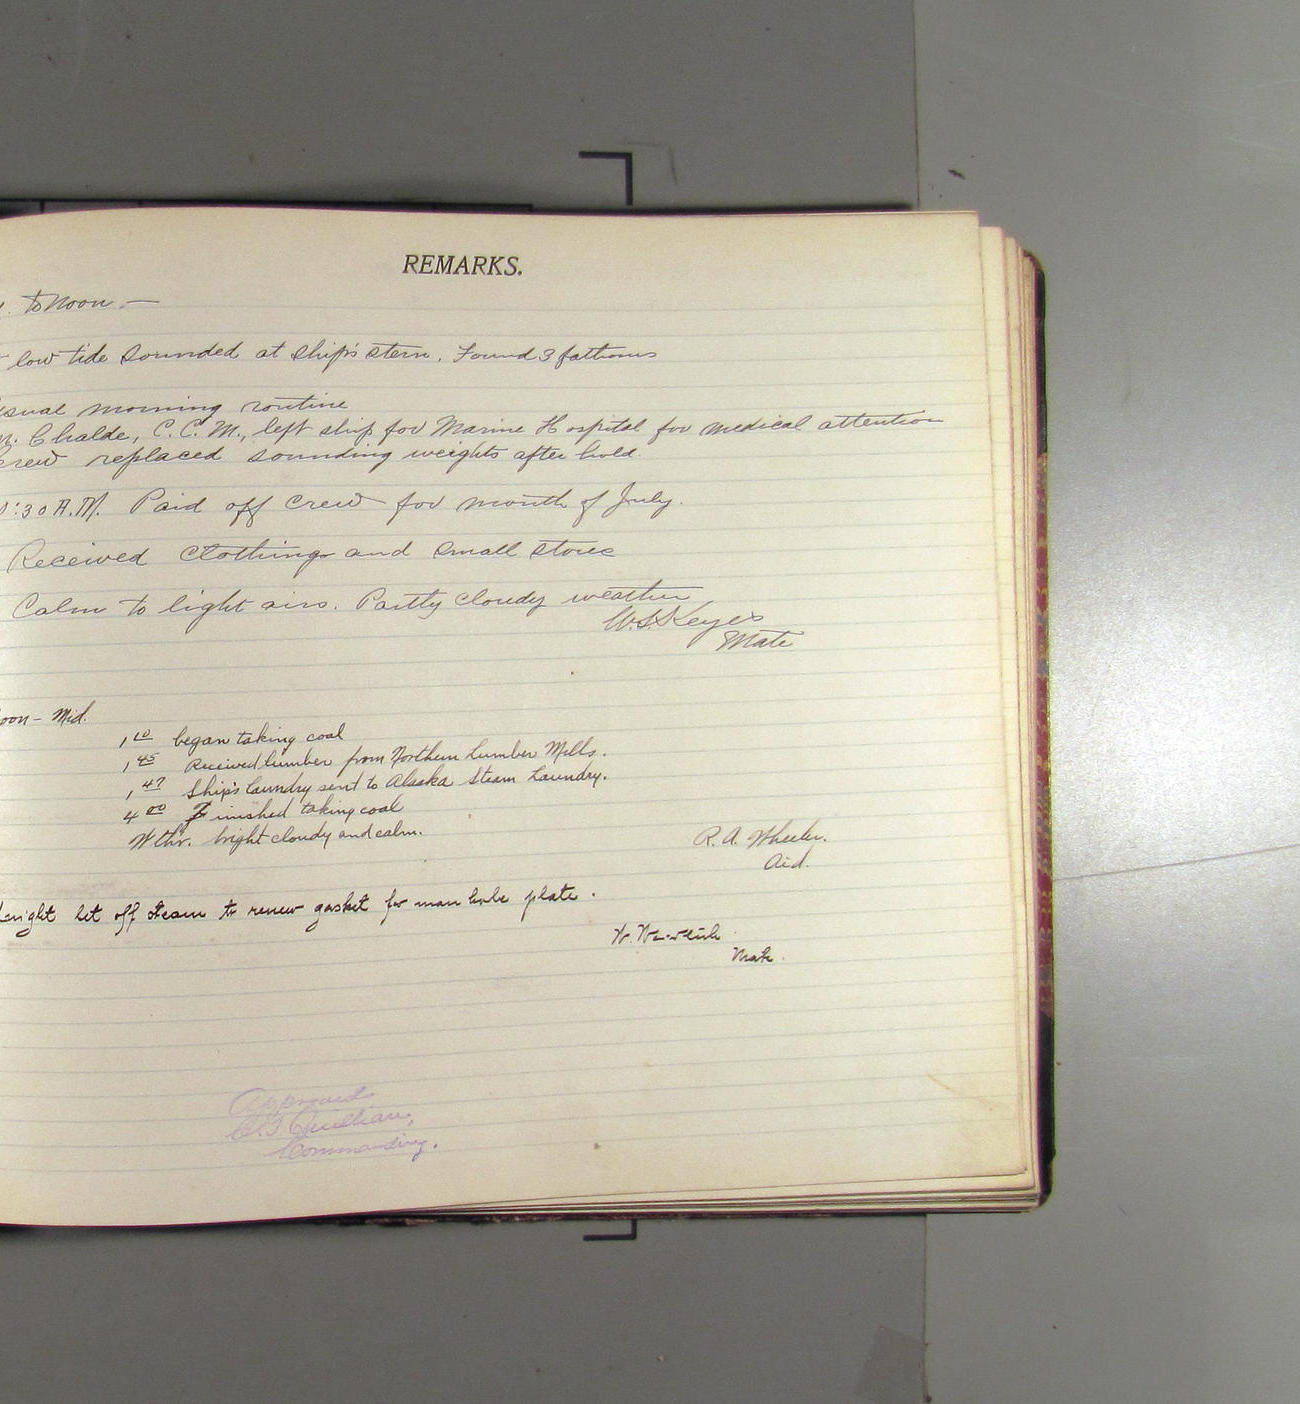 REMARKS.
to Noon —
low tide sounded at ship's stern. Found 3 fathoms
usual morning routine
Chalde, C.C.M., left ship for Marine Hospital for medical attention
crew replaced sounding weights after hold.
:30 A.M. Paid off crew for month of July.
Received clothing and small stores
Calm to light airs. Partly cloudy weather
W.S. Keyes
Mate
oon – Mid.
1 10 began taking coal
1 45 Received lumber from Northern Lumber Mills.
1 47 Ship's laundry sent to Alaska Steam Laundry.
4 00 Finished taking coal
Wthr. bright cloudy and calm.
R. A. Wheeler.
Aid.
night let off steam to renew gasket for man hole plate.
Mate.
Approved
Quillian,
Commanding.